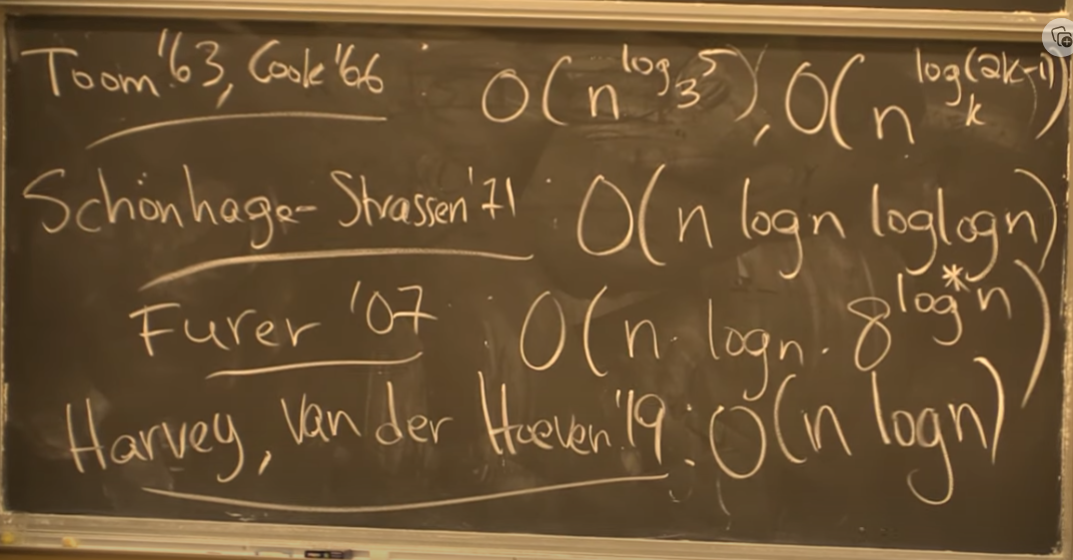 Toom '63, Cook '66 : O(n^{log_3 5}), O(n^{log_k (2k-1)})
Schönhage-Strassen '71 : O(n logn loglogn)
Furer '07 : O(n · logn · 8^{log* n})
Harvey, van der Hoeven '19 : O(n logn)